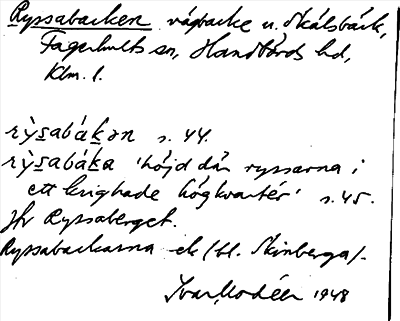 Ryssabacken vägbacke v. Skälsbäck,
Fagerhults sn, Handbörds hd,
Klm. l.
rỳsabákən s. 44.
rỳsabáka 'höjd där ryssarna i
ett krig hade högkvarter' s. 45.
Jfr Ryssaberget.
Ryssabackarna ek (bl. Skinberga).
Ivar Modéer 1948